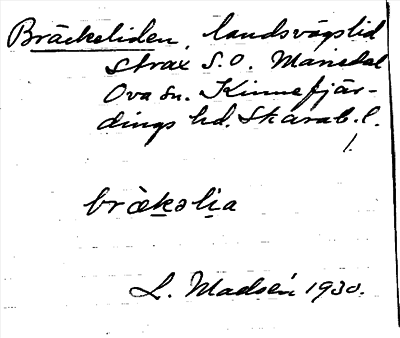 Bräckeliden, landsvägslid
strax S.O. Mariedal
Ova sn. Kinnefjär-
dings hd. Skarab. l.
1.
bræ̀kəlia
L. Madsén 1930.